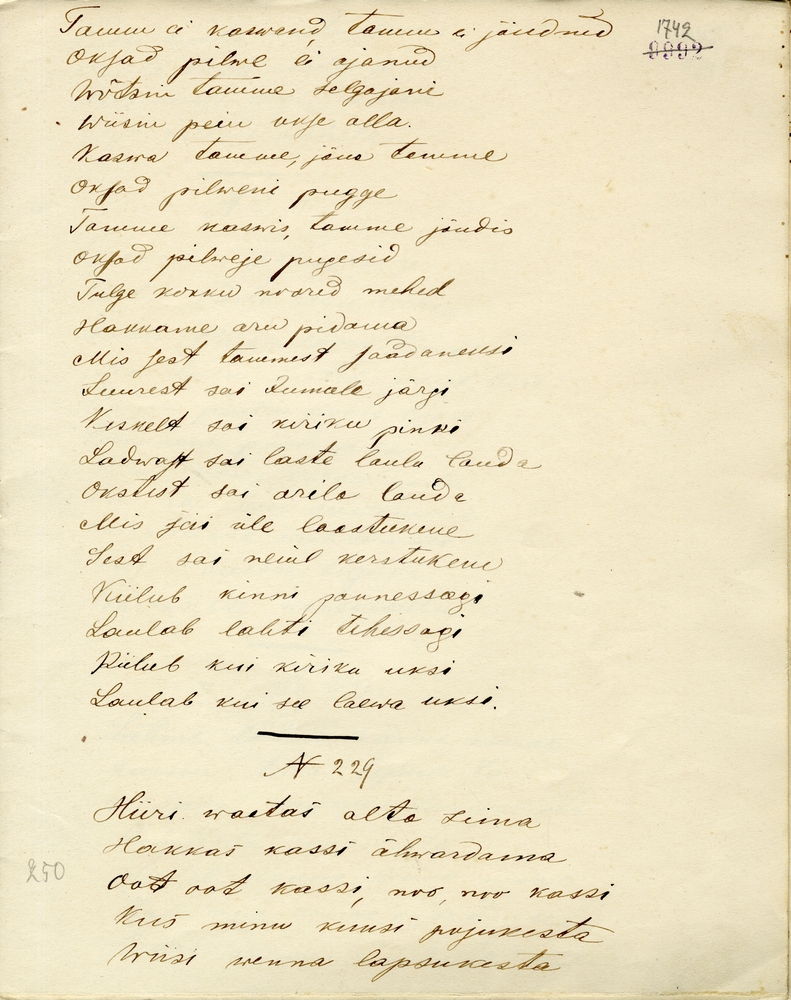 Tamm ei kaswand, tamm ei jöudnud
Oksad pilwe ei ajanud
Wötsin tamme selgajani
Wiisin pein ukse alla.
Kaswa tamme, jöua tamme
Oksad pilweni pugge
Tamme kaswis, tamme jöudis
Oksad pilweje pugesid
Tulge kokku noored mehed
Hakkame aru pidama
Mis sest tammest saadaneksi
Suurest sai Jumale järgi
Keskelt sai kiriku pinki
Ladwast sai laste laulu lauda
Okstest sai arila lauda
Mis jäi üle laastukene
Sest sai neiul kerstukene
Kiilub kinni pannessagi
Laulab lahti tehessagi
Kiilub kui kiriku uksi
Laulab kui see laewa uksi.
N 229
Hiiri waatas alta seina
Hakkas kassi ähwardama
Oot oot kassi, noo, noo kassi
Kus minu kuusi pojukesta
Wiisi wenna lapsukesta
1742
9992
250